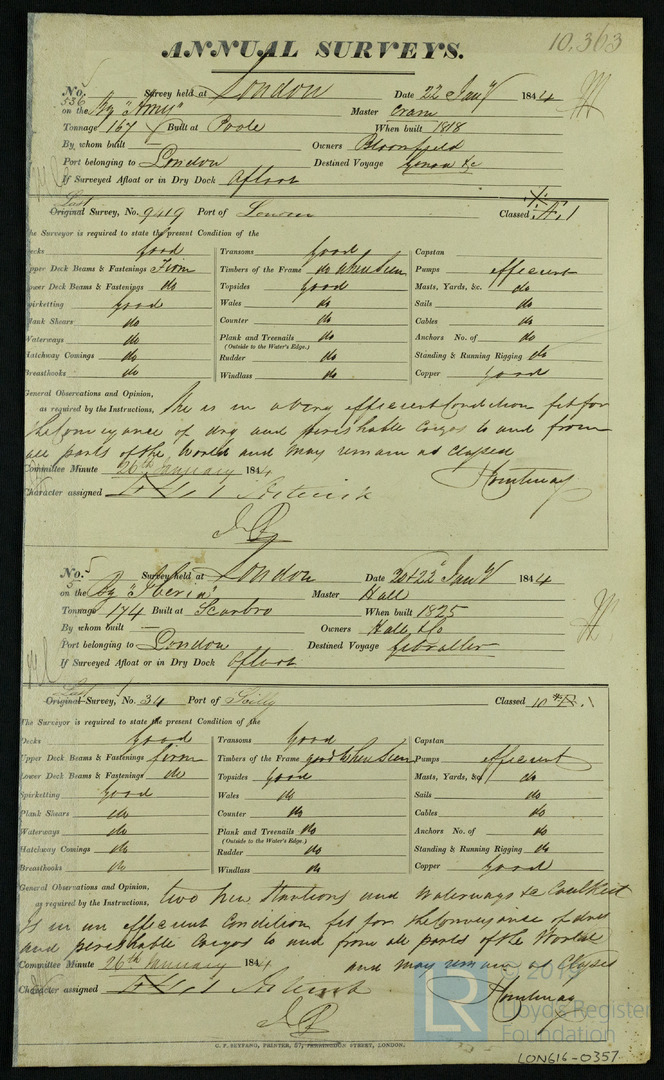 10,363
ANNUAL SURVEYS.
No. 5 Survey held at London Date 22 Jany 1844
536
on the Bg "Amy" Master Cram
Tonnage 167 Built at Poole When built 1818
By whom built — Owners Bloomfield
Port belonging to London Destined Voyage Genoa &c
If Surveyed Afloat or in Dry Dock Afloat
Last
Original Survey, No. 9419 Port of London Classed Æ 1
The Surveyor is required to state the present Condition of the
Decks good Transoms good Capstan
Upper Deck Beams & Fastenings Firm Timbers of the Frame do when seen Pumps efficient
Lower Deck Beams & Fastenings do Topsides good Masts, Yards, &c. do
Spirketting good Wales do Sails do
Plank Shears do Counter do Cables do
Waterways do Plank and Treenails do Anchors No. of do
(Outside to the Water's Edge.)
Hatchway Comings do Rudder do Standing & Running Rigging do
Breasthooks do Windlass do Copper good
General Observations and Opinion,
as required by the Instructions, She is in a very efficient Condition fit for
the Conveyance of dry and perishable Cargos to and from
all parts of the World and may remain as Classed
Committee Minute 26th January 1844
Character assigned
No. 5 Survey held at London Date 20 & 22 Jany 1844
5
on the Bg "Iberia" Master Hall
Tonnage 174 Built at Scarbro When built 1825
By whom built — Owners Hall & Co
Port belonging to London Destined Voyage Gibralter
If Surveyed Afloat or in Dry Dock Afloat
Last
Original Survey, No. 34 Port of Scilly Classed 10
The Surveyor is required to state the present Condition of the
Decks Good Transoms Good Capstan
Upper Deck Beams & Fastenings Firm Timbers of the Frame good when seen Pumps efficient
Lower Deck Beams & Fastenings do Topsides good Masts, Yards, &c. do
Spirketting good Wales do Sails do
Plank Shears do Counter do Cables do
Waterways do Plank and Treenails do Anchors No. of do
(Outside to the Water's Edge.)
Hatchway Comings do Rudder do Standing & Running Rigging do
Breasthooks do Windlass do Copper good
General Observations and Opinion,
as required by the Instructions, two new Stantions and Waterways &c Caulked
Is in an efficient Condition fit for the Conveyance of dry
and perishable Cargos to and from all parts of the World
Committee Minute 26th January 1844 and may remain as Classed
Character assigned
LR © Lloyd's Register
Foundation
G. F. SEYFANG, PRINTER, 57, FARRINGDON STREET, LONDON.
LON616-0357